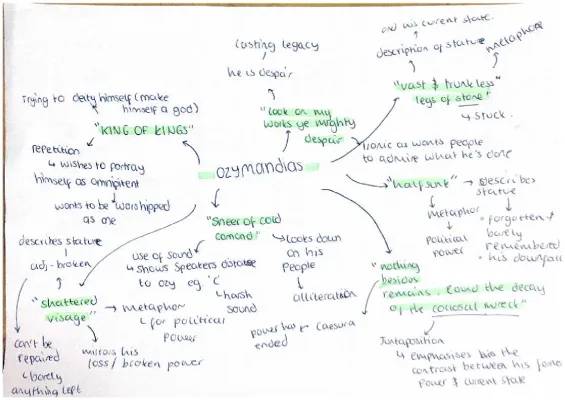 and his curent state.
description of statue
metaphore
"vast & trunkless"
legs of stone"
↳ stuck.
lasting legacy
he is despair
"look on my
works ye mighty
despair
ironic as wants people
to admire what he's done
trying to deify himself (make
himself a god)
"KING OF KINGS"
repetition
↳ wishes to portray
himself as omnipitent
wants to be worshipped
as one
ozymandias
"half sunk" → describes
statue
forgotten &
barely
remembered
his downfall
metaphor
political
power
"Sneer of cold
comand"
looks down
on his
people
alliteration
use of sound
↳ shows speakers distaste
to ozy eg. 'C'
↳ harsh
sound
describes statue
adj - broken
"shattered
visage"
→ metaphor
↳ for political
power
can't be
repaired
↳ barely
anything left
mirrors his
loss / broken power
"nothing
besides
remains. round the decay
of the colossal wreck"
caesura
power has
ended
Juxtaposition
↳ emphasises the
contrast between his
power & current state